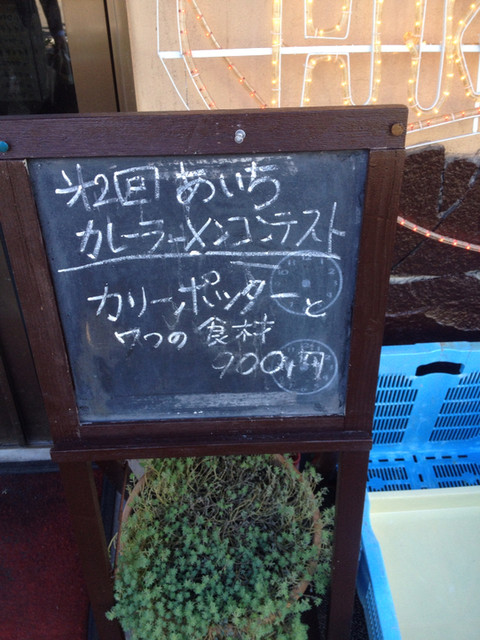 第2回 あいち
カレーラーメンコンテスト
カリー・ポッターと
7つの食材
900円